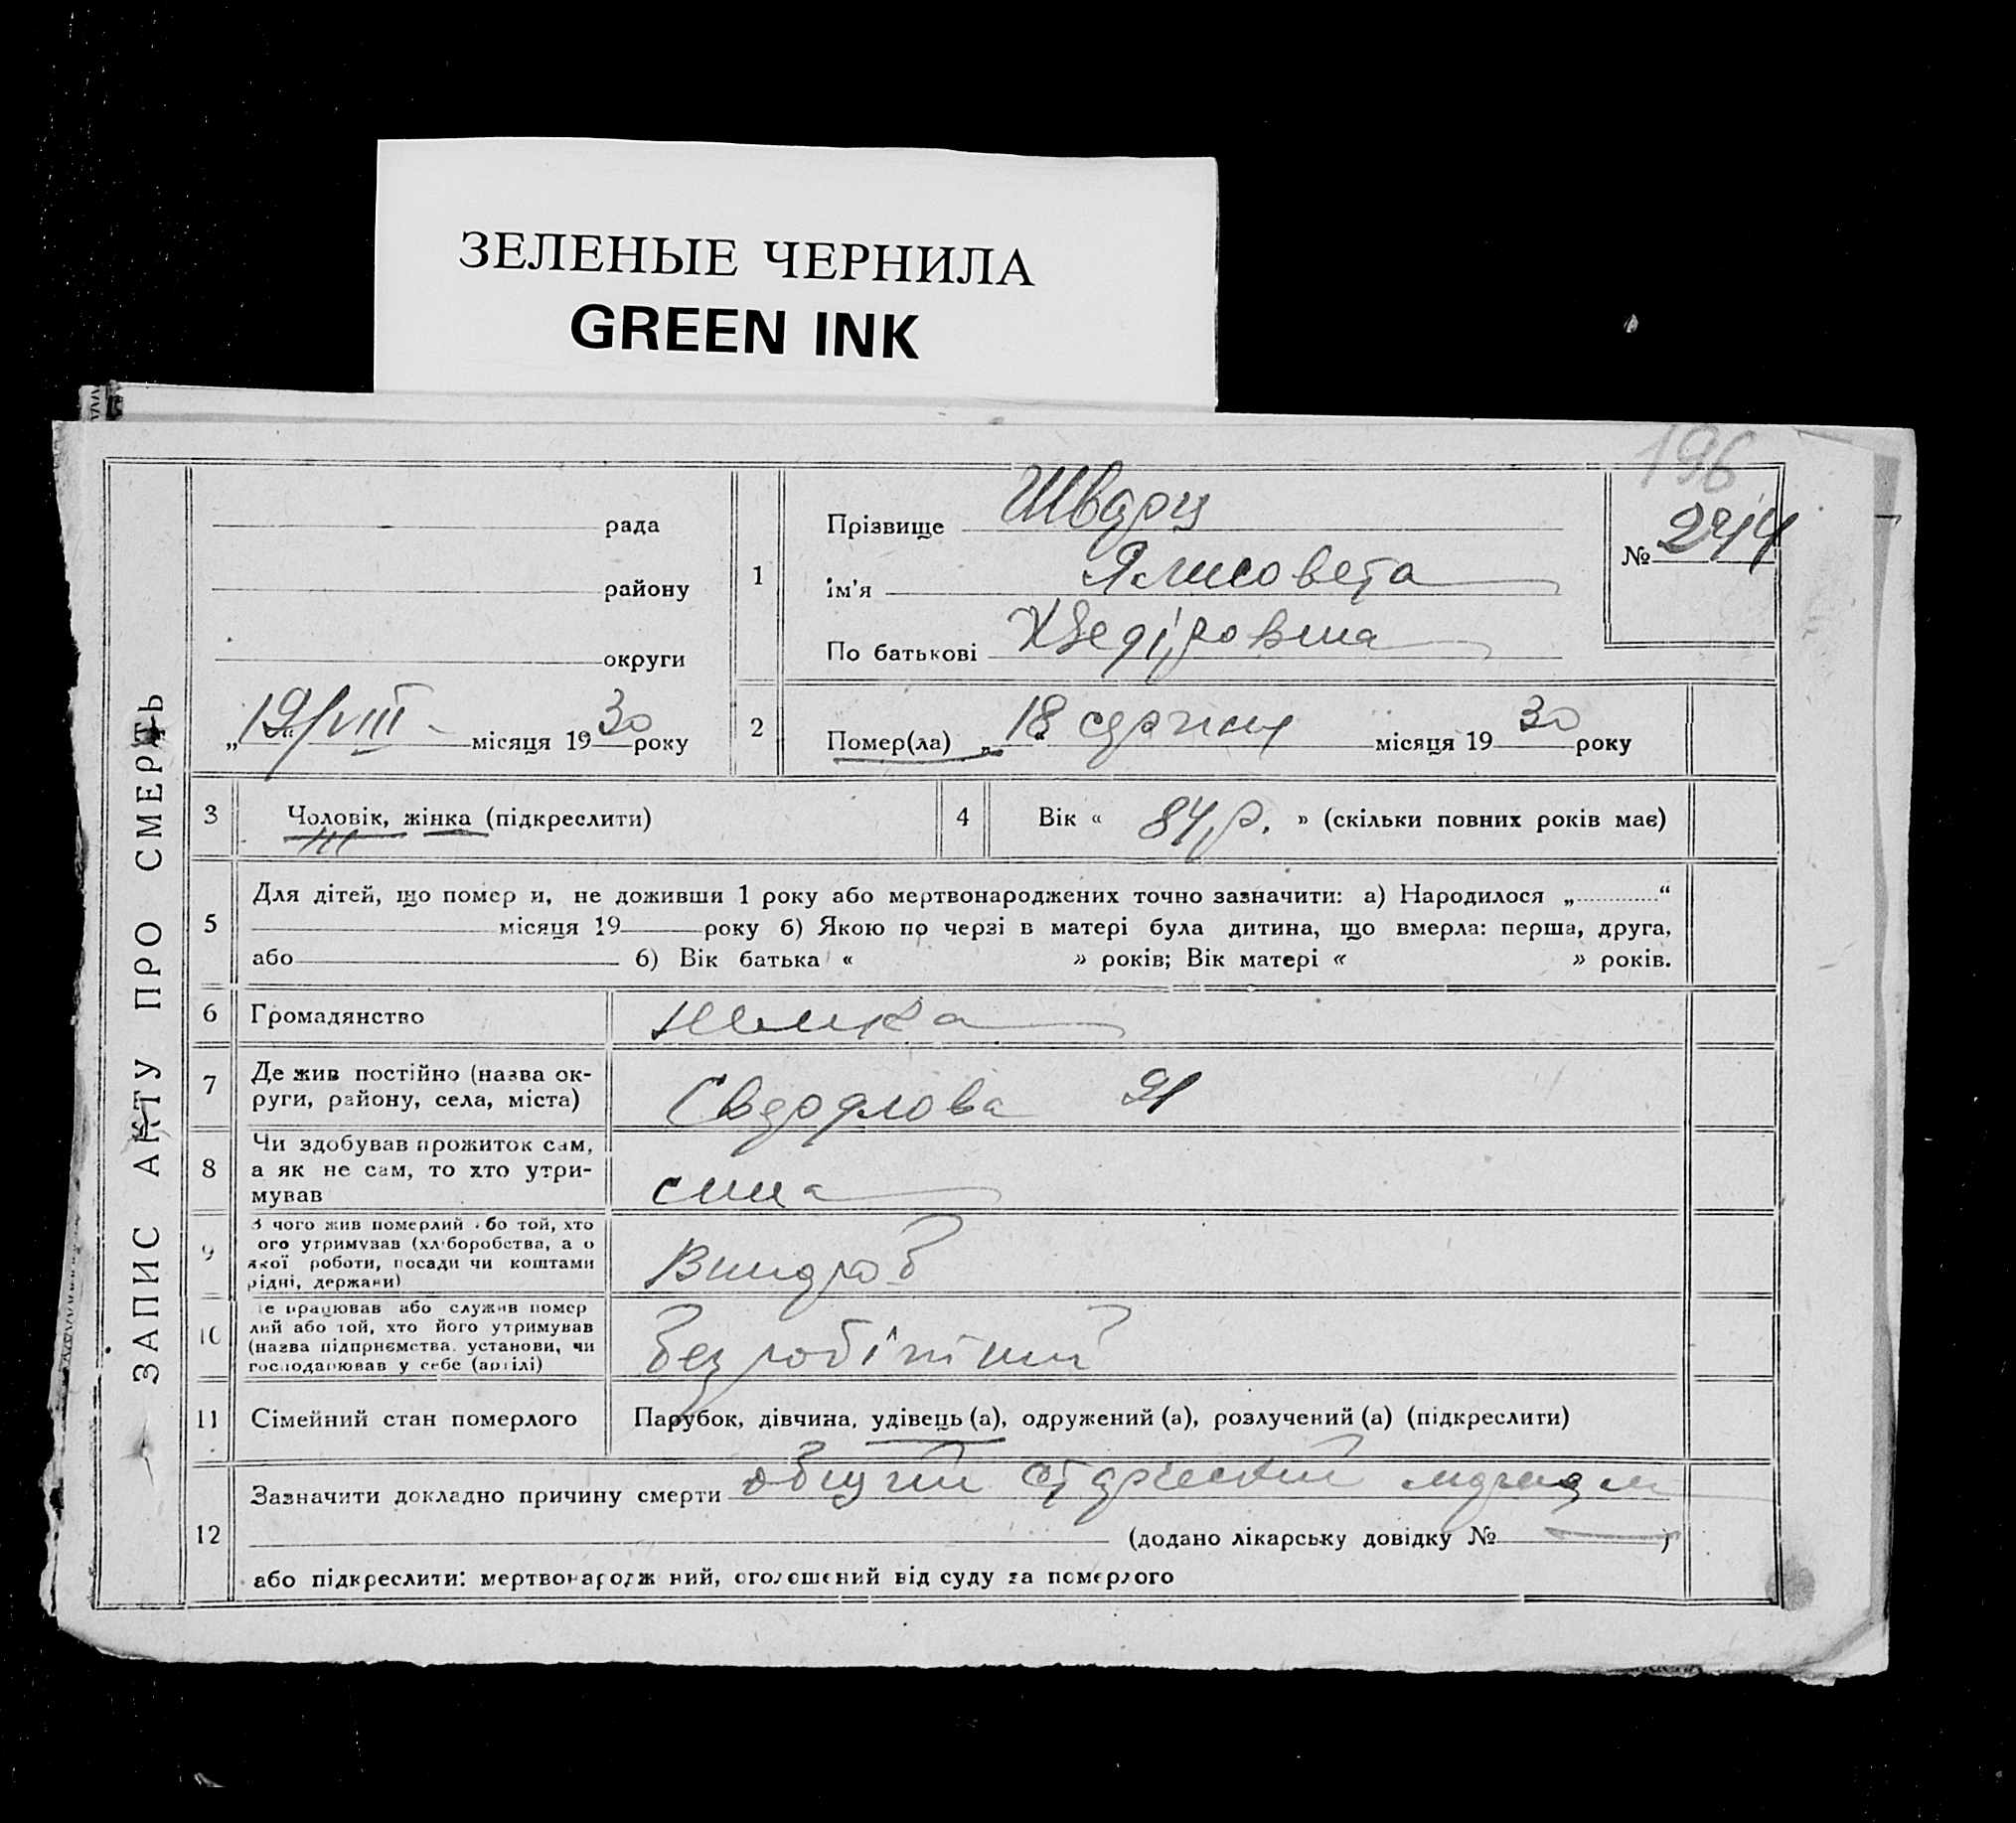 ЗЕЛЕНЫЕ ЧЕРНИЛА
GREEN INK
196
ЗАПИС АКТУ ПРО СМЕРТЬ
рада
району
округи
„19/VIII місяця 1930 року
1
Прізвище Шварц
ім'я Єлисовета
По батькові Хведіровна
№ 244
2
Помер(ла) „18 серпня місяця 1930 року
3
Чоловік, жінка (підкреслити)
4
Вік « 84 р. » (скільки повних років має)
5
Для дітей, що помер и, не доживши 1 року або мертвонароджених точно зазначити: а) Народилося „ “
місяця 19 року б) Якою по черзі в матері була дитина, що вмерла: перша, друга,
або б) Вік батька « » років; Вік матері « » років.
6
Громадянство
німка
7
Де жив постійно (назва ок-
руги, району, села, міста)
Свердлова 91
8
Чи здобував прожиток сам,
а як не сам, то хто утри-
мував
сина
9
З чого жив померлий бо той, хто
ого утримував (хл боробства, а о
якої роботи, посади чи коштами
рідні, держави)
10
е працював або служив помер
лий або той, хто його утримував
(назва підприємства, установи, чи
господарював у себе (артілі)
безробітний
11
Сімейний стан померлого
Парубок, дівчина, удівець (а), одружений (а), розлучений (а) (підкреслити)
12
Зазначити докладно причину смерти общий старческий маразм
(додано лікарську довідку № )
або підкреслити: мертвонародж ний, оголошений від суду за померлого